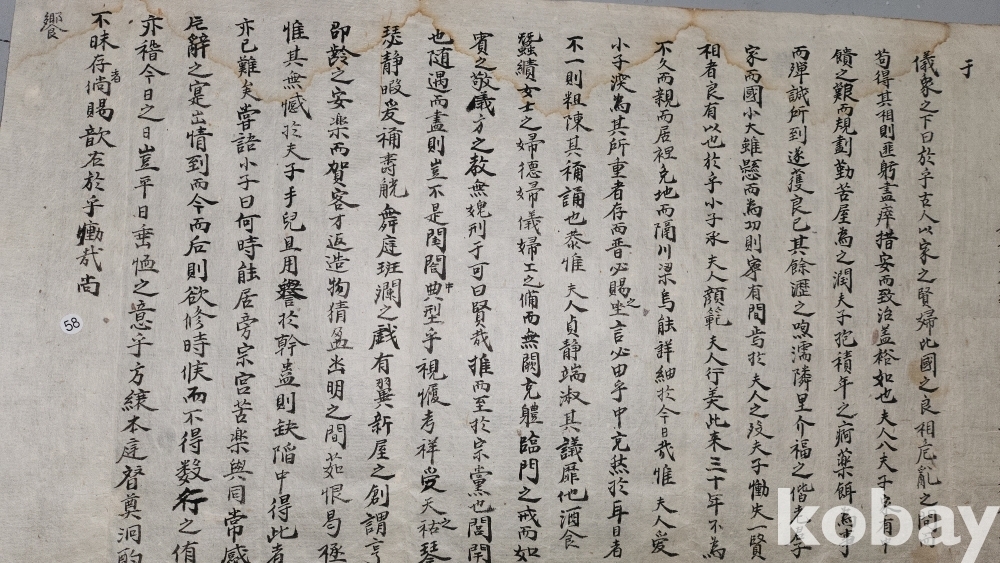 于
儀家之下曰於乎古人以家之賢婦比國之良相危亂之間
苟得其相則匪躬盡瘁措安而致治盖裕如也夫人入夫子家有年
饋之艱而規劃勤苦屋為之潤夫子抱積年之痾藥餌
而殫誠所到遂獲良已其餘瀝之呴濡隣里介福之偕
家而國小大雖懸而為功則寧有間焉於夫人之歿夫子慟失一賢
相者良有以也於乎小子承夫人顔範夫人行美此來三十年不為
不久而親而居裡克地而隔川梁烏能詳紬於今日哉惟夫人愛
小子深為其所重者存而晋必賜之坐言必由乎中充然於耳目者
不一則粗陳其稱誦也恭惟夫人貞静端淑其議罷他酒食
蠶績女士之婦德婦儀婦工之備而無闕克軆臨門之戒而如
賓之敬義方之教無媿刑于可曰賢哉推而至於宗黨也閭閈
也随遇而盡則豈不是閨閤中典型乎視愝考祥受天祜之琴
瑟静嘏爰稱壽觥舞庭班斕之戯有翼新屋之創謂享
卲齡之安楽而賀客才返造物猜盈出明之間茹恨曷極
惟其無憾於夫子手兒且用譽於幹蠱則缺陷中得此者
亦已難矣嘗語小子曰何時能居旁宗宮苦楽與同常感
辭之寔出情到而今而后則欲修時候而不得数行之侑
亦稽今日之日豈平日垂恤之意乎方縗本庭督奠洞酌
不昧存者尙賜歆右於乎慟哉尚
饗
58
kobay